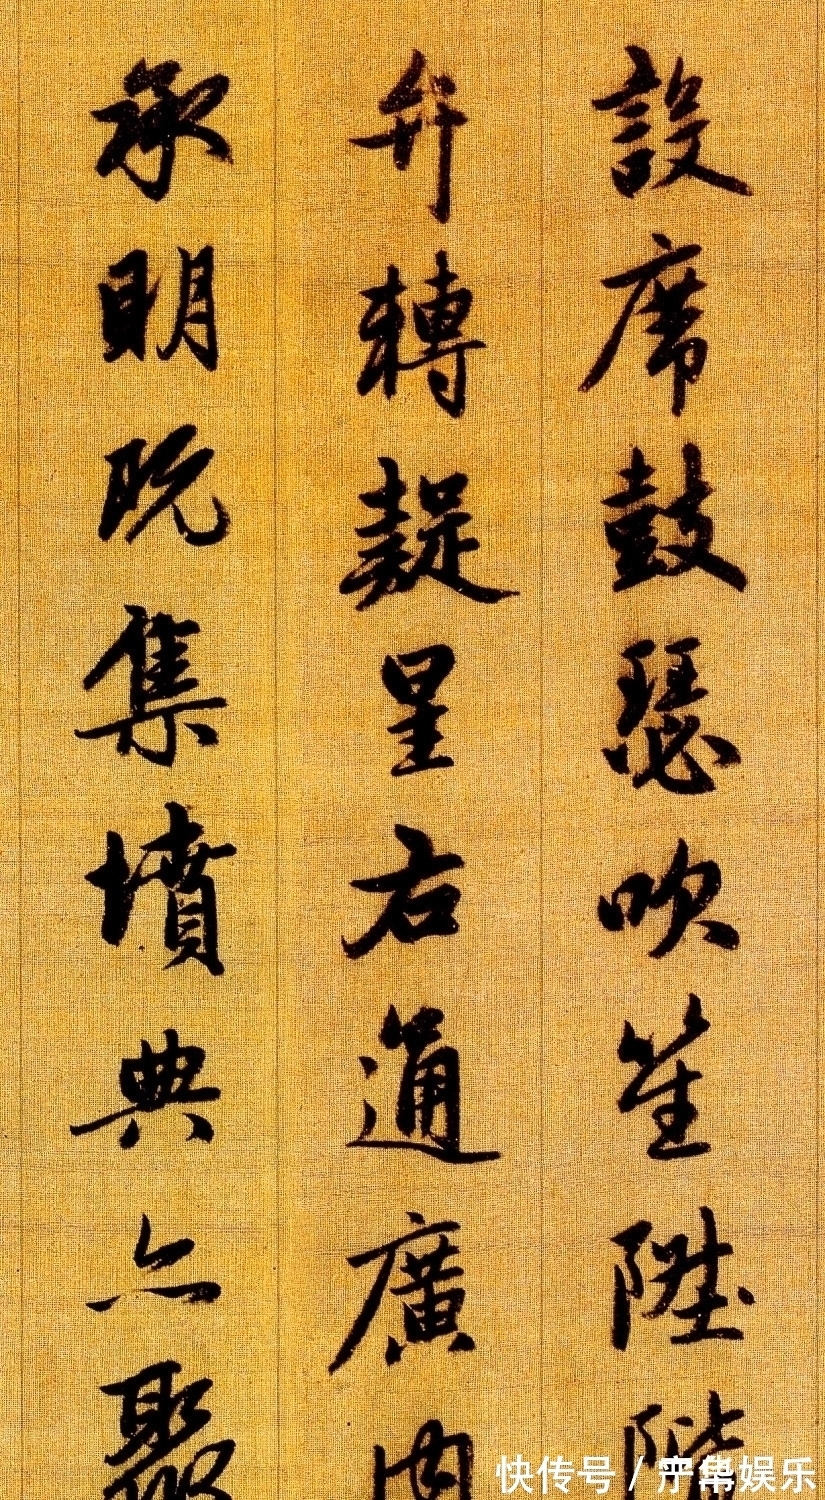 設席鼓瑟吹笙陞階
弁轉疑星右通廣內
承明既集墳典亦聚
快传号 / 娱乐